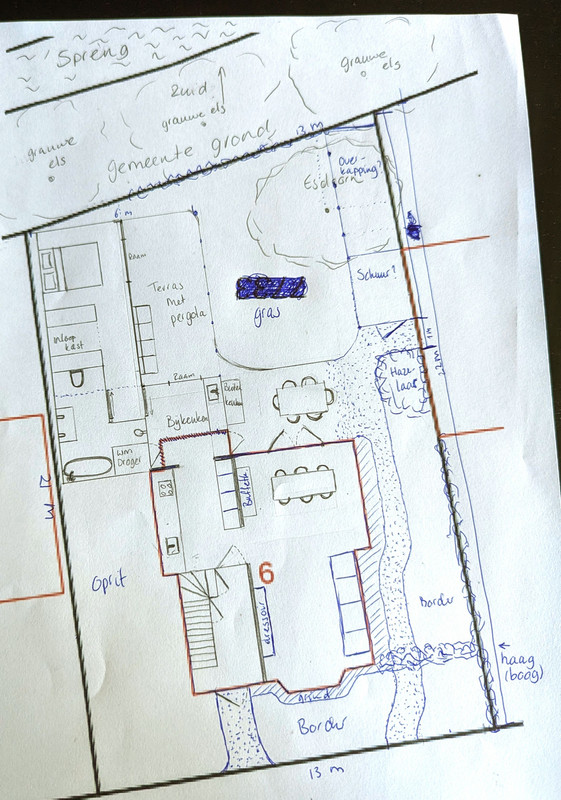 Spreng
Zuid
grauwe els
grauwe
els
grauwe
els
gemeente grond
13 m
Over-
kapping?
Esdoorn
6 m
Raam
Terras
met
pergola
gras
Schuur?
1 m
Inloop
kast
Raam
Bijkeuken
Buiten
keuken
Haze
laar
WM
Droger
21 M
Buffetk
Oprit
6
dressoir
Border
haag
(boog)
Border
13 m